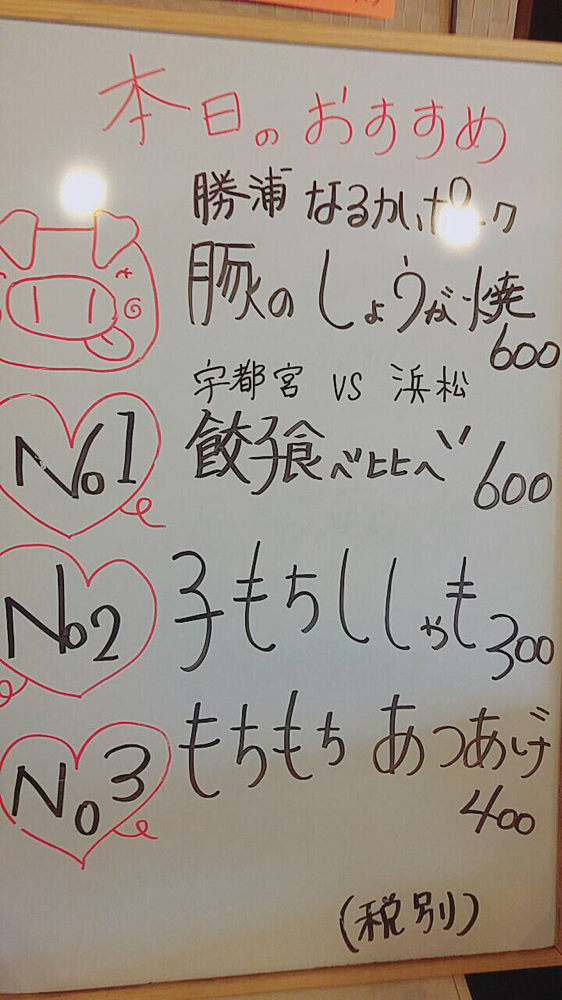 本日のおすすめ
勝浦 なるかポーク
豚のしょうが焼
600
宇都宮 VS 浜松
No1
餃子食べ比べ 600
No2
子もちししゃも 300
No3
もちもち あつあげ
400
(税別)